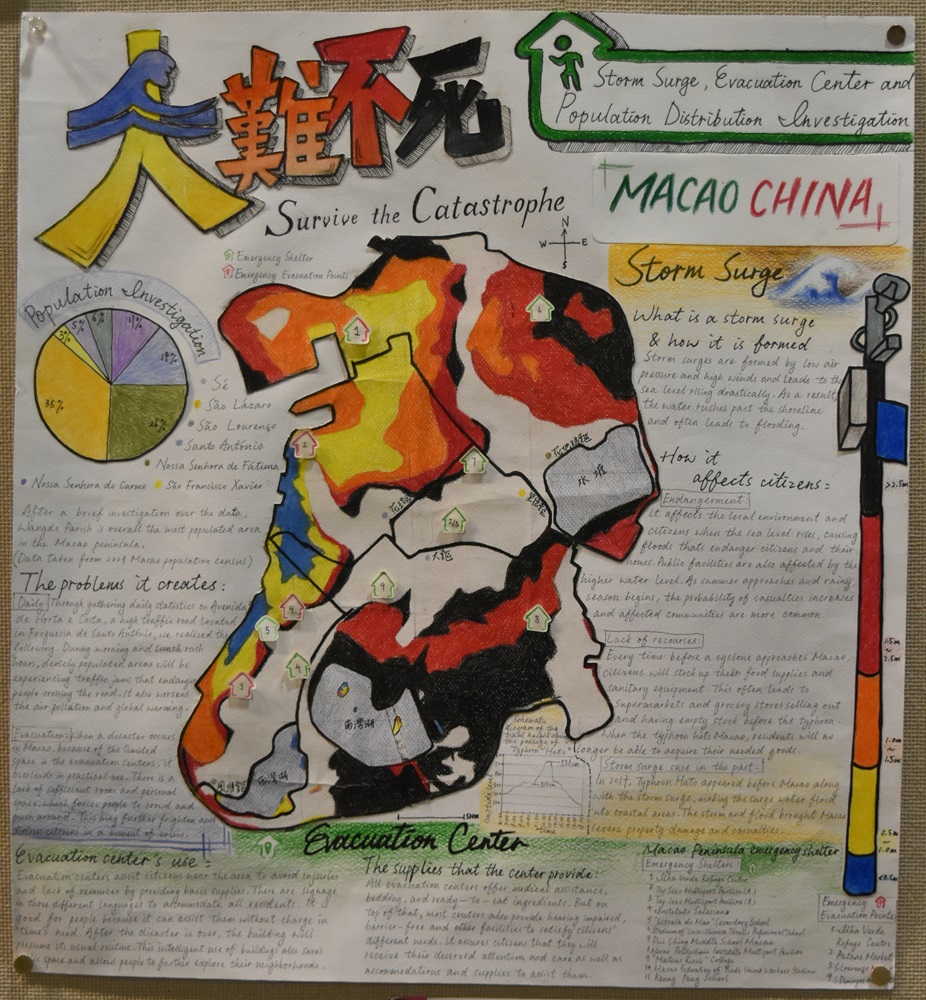 大難不死
Survive the Catastrophe
Storm Surge, Evacuation Center and
Population Distribution Investigation
MACAO CHINA
N
W E
S
Emergency Shelter
Emergency Evacuation Points
Population Investigation
3% 5% 6% 11%
19%
35%
Sé
São Lázaro
São Lourenço
Santo António
Nossa Senhora de Fátima
Nossa Senhora do Carmo São Francisco Xavier
After a brief investigation over the data,
Parish is overall the most populated area
in the Macao peninsula.
(Data taken from Macao population census)
The problems it creates:
Daily: Through gathering daily statistics on Avenida
de Horta e Costa, a high traffic road located
in Freguesia de Santo António, we realised the
following. During morning and lunch rush
hours, densely populated areas will be
experiencing traffic jams that endanger
people crossing the road. It also worsens
the air pollution and global warming.
Evacuation: When a disaster occurs
in Macao, because of the limited
space in the evacuation centers, it
overloads in practical use. There is a
lack of sufficient room and personal
space, which forces people to crowd and
push around. This may further frighten
citizens in a moment of
1
2
6
7
9
8
4
5
4
3
水塘
大炮台
南灣湖
Storm Surge
What is a storm surge
& how it is formed
Storm surges are formed by low air
pressure and high winds and leads to the
sea level rising drastically. As a result,
the water rushes past the shoreline
and often leads to flooding.
How it
affects citizens:
Endangerment:
It affects the local environment and
citizens when the sea level rises, causing
floods that endanger citizens and their
homes. Public facilities are also affected by the
higher water level. As summer approaches and rainy
season begins, the probability of casualties increases
and affected communities are more common.
Lack of recourses:
Every time before a cyclone approaches Macao,
citizens will stock up their food supplies and
sanitary equipment. This often leads to
supermarkets and grocery stores selling out
and having empty stock before the typhoon.
When the typhoon hits Macao, residents will no
longer be able to acquire their needed goods
Storm surge case in the past:
In 2017, Typhoon Hato appeared before Macao along
with the storm surge, making the surge water flood
into coastal areas. The storm and flood brought Macao
severe property damage and casualties.
Schematic
diagram of the
tidal height
the passage of
Typhoon "Hato"
time
>2.5m
1.5m
~
2.5m
1.0m
~
1.5m
0.5m
~
1.0m
Evacuation Center
Evacuation center's use:
Evacuation centers assist citizens near the area to avoid injuries
and lack of resources by providing basic supplies. There are signage
in three different languages to accommodate all residents. It is
good for people because it can assist them without charge in
times need. After the disaster is over, the building will
resume its usual routine. This intelligent use of buildings also saves
space and allows people to further explore their neighborhoods.
The supplies that the center provide:
All evacuation centers offer medical assistance,
bedding, and ready-to-eat ingredients. But on
top of that, most centers also provide hearing impaired,
barrier-free and other facilities to satisfy citizens'
different needs. It assures citizens that they will
receive their deserved attention and care as well as
accommodations and supplies to assist them.
Macao Peninsula emergency shelter
Emergency Shelters
1. Ilha Verde Refuge Centre
4 Instituto Salesiano
5 "Estrela do Mar" Secondary School
7 Pui Ching Middle School Macau
9 "Mateus Ricci" College
11. Keang Peng School
Emergency
Evacuation Points
1 Ilha Verde
Refuge Centre
2 Patane Market